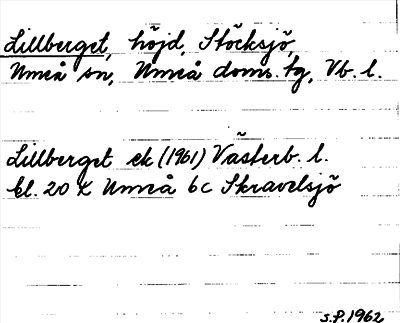 Lillberget, höjd, Stöcksjö,
Umeå sn, Umeå doms. tg, Vb. l.
Lillberget ek (1961) Västerb. l.
bl. 20 K Umeå 6c Skravelsjö
S.P. 1962